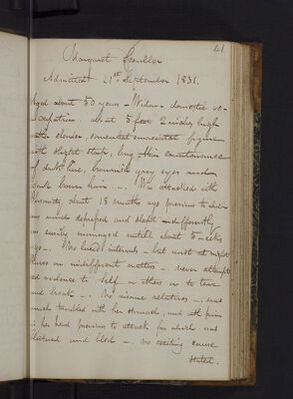 41
Margaret
Admitted 21st September 1831.
Aged about 50 years – Widow – domestic oc-
cupation. about 5 feet 2 inches high
rather slender, somewhat emaciated figure
with slight stoop, long thin countenance
of dark hue, brownish grey eyes and
dark brown hair — Was attacked with
about 18 months ago previous to which
was much depressed and slept indifferently
easily managed until about 5 weeks
ago — No lucid intervals – but most at night
on indifferent matters — never attempted
violence to self or others or to tear
and break — No insane relatives — was
much troubled with her stomach, and with pain
in her head previous to attack for which was
blistered and bled — No exciting cause
stated.